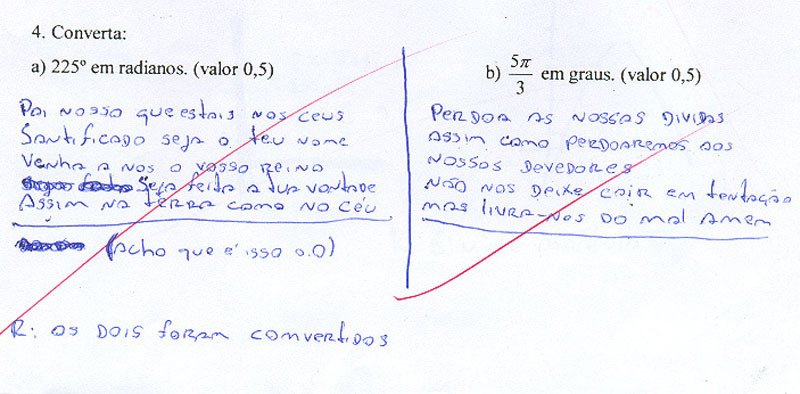 4. Converta:
a) 225º em radianos. (valor 0,5)
Pai nosso que estais nos ceus
Santificado seja o teu nome
Venha a nos o vosso reino
Seja feita a tua vontade
Assim na terra como no céu
(acho que é isso o.O)
b) 5π/3 em graus. (valor 0,5)
Perdoa as nossas dividas
assim como perdoaremos aos
nossos devedores
não nos deixe cair em tentação
mas livra-nos do mal amem
R: os dois foram comvertidos